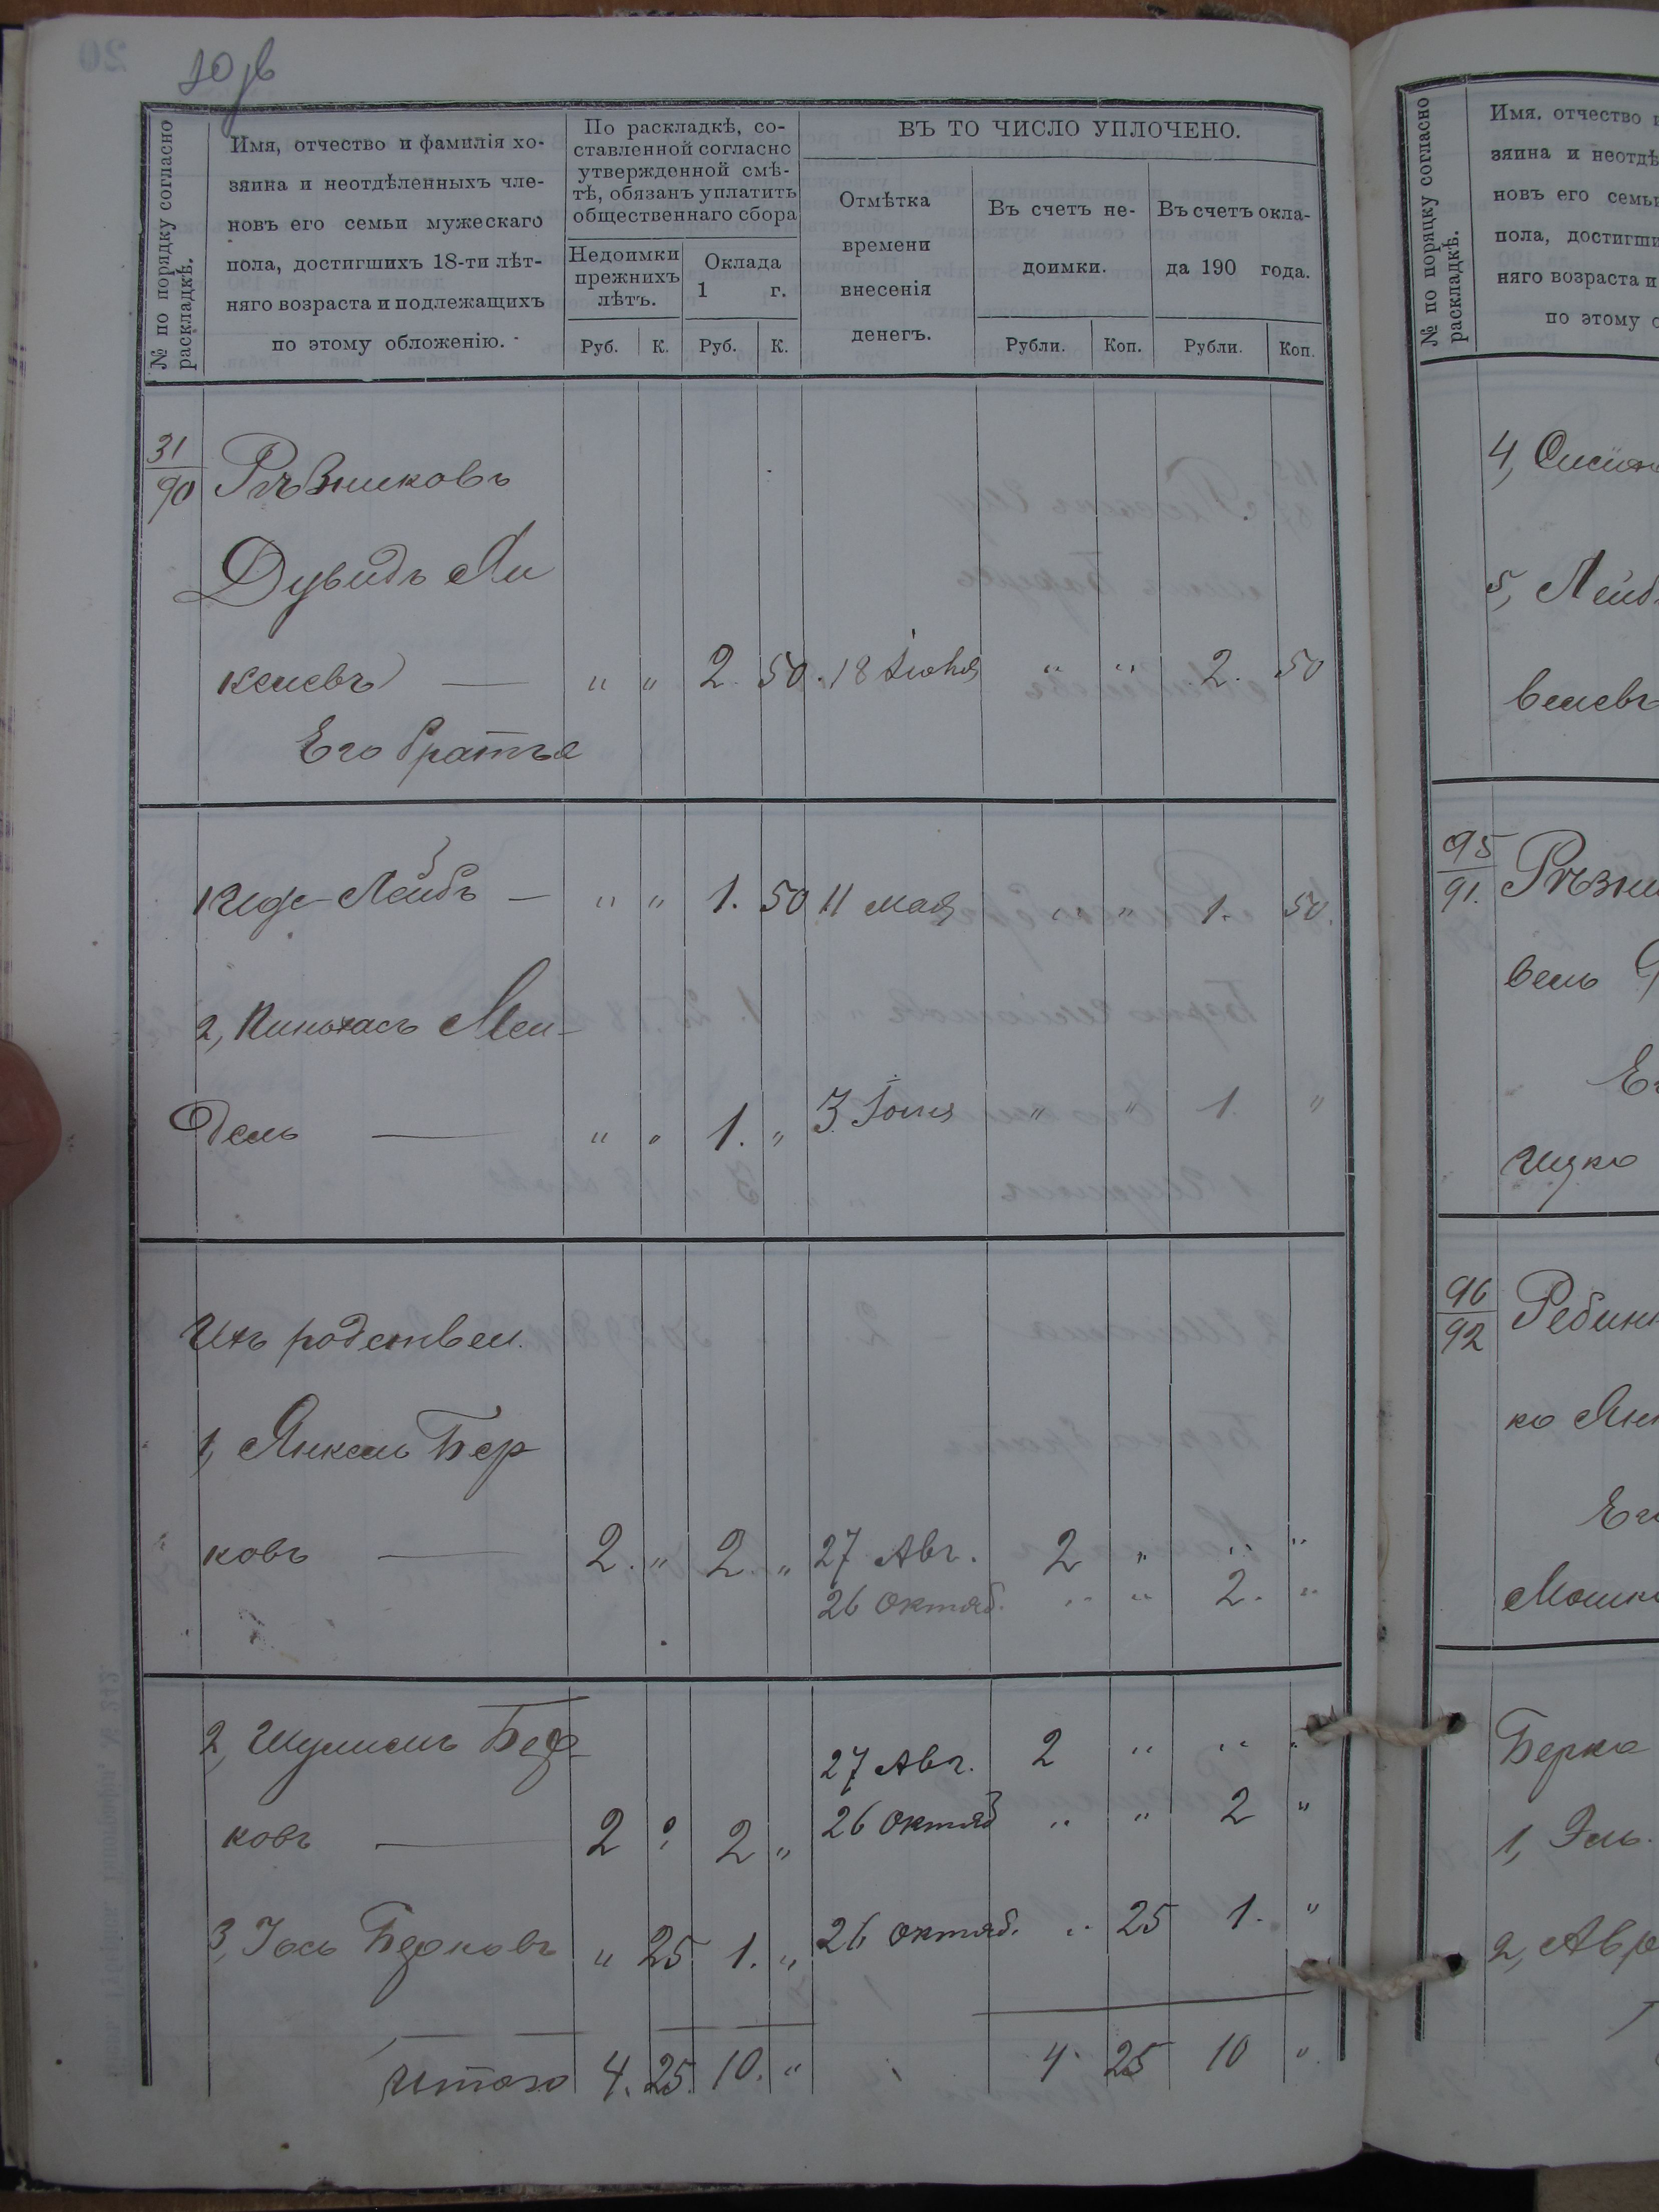 № по порядку согласно
раскладкѣ.
Имя, отчество и фамилія хо-
зяина и неотдѣленныхъ чле-
новъ его семьи мужескаго
пола, достигшихъ 18-ти лѣт-
няго возраста и подлежащихъ
по этому обложенію.
По раскладкѣ, со-
ставленной согласно
утвержденной смѣ-
тѣ, обязанъ уплатить
общественнаго сбора
Недоимки
прежнихъ
лѣтъ.
Оклада
1 г.
Руб. К. Руб. К.
ВЪ ТО ЧИСЛО УПЛОЧЕНО.
Отмѣтка
времени
внесенія
денегъ.
Въ счетъ не-
доимки.
Рубли. Коп.
Въ счетъ окла-
да 190 года.
Рубли. Коп.
31
90 Рѣзниковъ
Дувидъ
" " 2. 50. 18 " " 2. 50
Его братья
Лейбъ — " " 1. 50 11 мая " " 1. 50.
2, Пинхасъ Мен-
дель — " " 1. " 3 " " 1. "
Ихъ родствен.
1, Янкель Бер
ковъ — 2. " 2 " 27 Авг. 2 " " "
26 Октяб. " " 2. "
2, Шулимъ Бер-
27 Авг. 2 " " "
ковъ — 2 " 2 " 26 Октяб " " 2 "
3, Іось Берковъ " 25 1. " 26 Октяб. " 25 1. "
Итого 4. 25. 10. " 4. 25 10 "
№ по порядку согласно
раскладкѣ.
Имя, отчество и
зяина и неотдѣ
новъ его семьи
пола, достигши
няго возраста и
по этому о
4,
5, Лейб
95
91. Рѣзни
Ицко
96
92
ко Янк
Мошк
Берко
1, Эль
2, Авр